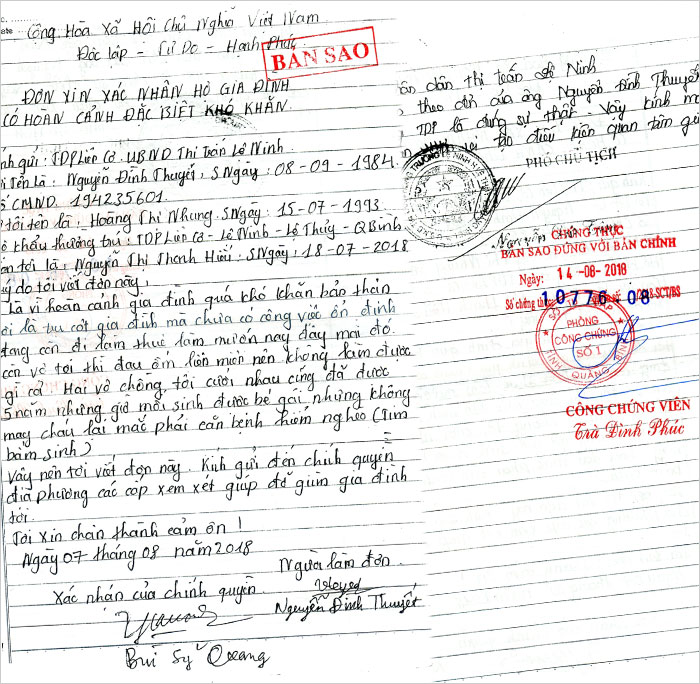 Cộng Hòa Xã Hội Chủ Nghĩa Việt Nam
Độc lập - Tự Do - Hạnh Phúc
BẢN SAO
ĐƠN XIN XÁC NHẬN HỘ GIA ĐÌNH
CÓ HOÀN CẢNH ĐẶC BIỆT KHÓ KHĂN
nh gửi: TDP Liên Cơ. UBND Thị Trấn Lệ Ninh.
i Tên Là: Nguyễn Đình Thuyết, S Ngày: 08-09-1984.
CMND. 194235601.
tôi tên là: Hoàng Thị Nhung. S Ngày: 15-07-1993
khẩu thường trú: TDP Liên Cơ - Lệ Ninh - Lệ Thủy - Q Bình
tôi là: Nguyễn Thị Thanh Hiếu: S Ngày: 18-07-2018
lý do tôi viết đơn này:
Là vì hoàn cảnh gia đình quá khó khăn bản thân
ôi là trụ cột gia đình mà chưa có công việc ổn định
đang còn đi làm thuê làm mướn nay đây mai đó.
còn vợ tôi thì đau ốm liên miên nên không làm được
gì cả. Hai vợ chồng tôi cưới nhau cũng đã được
5 năm nhưng giờ mới sinh được bé gái nhưng không
may cháu lại mắc phải căn bệnh hiểm nghèo (Tim
bẩm sinh)
Vậy nên tôi viết đơn này. Kính gửi đến chính quyền
địa phương các cấp xem xét giúp đỡ giùm gia đình
tôi.
Tôi xin chân thành cảm ơn!
Ngày 07 tháng 08 năm 2018
Người làm đơn.
Xác nhận của chính quyền
Nguyễn Đình Thuyết
Bùi Sỹ Quang
ân dân thị trấn Lệ Ninh
theo đơn của ông Nguyễn Đình Thuyết
TDP là đúng sự thật. Vậy kính m
tạo điều kiện quan tâm gi
PHÓ CHỦ TỊCH
CHỨNG THỰC
BẢN SAO ĐÚNG VỚI BẢN CHÍNH
Ngày: 14-08-2018
Số chứng thực 10776 08 -SCT/BS
PHÒNG
CÔNG CHỨNG
SỐ 1
TỈNH QUẢNG BÌNH
CÔNG CHỨNG VIÊN
Trà Đình Phúc